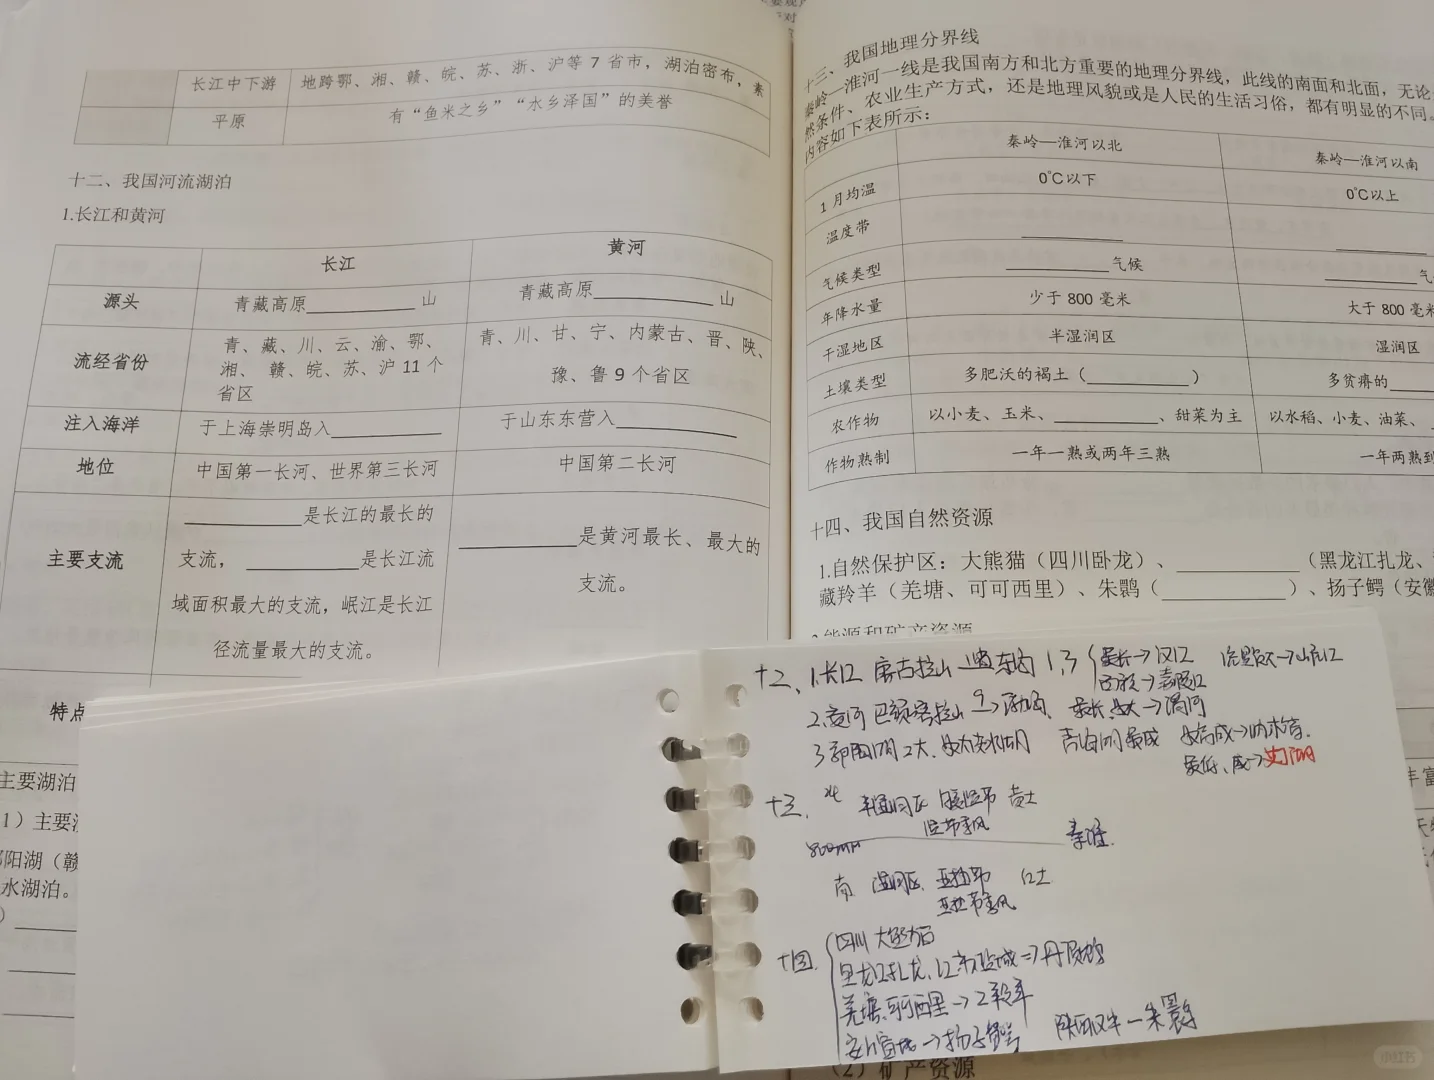 长江中下游
平原
地跨鄂、湘、赣、皖、苏、浙、沪等 7 省市，湖泊密布，素
有“鱼米之乡”“水乡泽国”的美誉
十二、我国河流湖泊
1.长江和黄河
长江 黄河
源头 青藏高原__________山 青藏高原__________山
流经省份
青、藏、川、云、渝、鄂、
湘、赣、皖、苏、沪 11 个
省区
青、川、甘、宁、内蒙古、晋、陕、
豫、鲁 9 个省区
注入海洋 于上海崇明岛入__________ 于山东东营入__________
地位 中国第一长河、世界第三长河 中国第二长河
主要支流
__________是长江的最长的
支流，__________是长江流
域面积最大的支流，岷江是长江
径流量最大的支流。
__________是黄河最长、最大的
支流。
特点
主要湖泊
1）主要
阳湖（赣
水湖泊。
十三、我国地理分界线
秦岭—淮河一线是我国南方和北方重要的地理分界线，此线的南面和北面，无论
然条件、农业生产方式，还是地理风貌或是人民的生活习俗，都有明显的不同。
内容如下表所示：
秦岭—淮河以北 秦岭—淮河以南
1 月均温 0℃以下 0℃以上
温度带 __________ __________
气候类型 __________气候 __________气
年降水量 少于 800 毫米 大于 800 毫米
干湿地区 半湿润区 湿润区
土壤类型 多肥沃的褐土（__________） 多贫瘠的____
农作物 以小麦、玉米、__________、甜菜为主 以水稻、小麦、油菜、
作物熟制 一年一熟或两年三熟 一年两熟到
十四、我国自然资源
1.自然保护区：大熊猫（四川卧龙）、__________（黑龙江扎龙、
藏羚羊（羌塘、可可西里）、朱鹮（__________）、扬子鳄（安徽
2.能源和矿产资源
十二、1.长江 唐古拉山 东海 1,3 最长→汉江 流量最大→岷江
面积→嘉陵江
2.黄河 巴颜喀拉山 9→渤海、最长、最大→渭河
3 鄱阳湖 2大、最大淡水湖 青海湖最咸 最高咸→纳木错.
最低、咸→艾丁湖
十三、北 半湿润区 暖温带 黄土
温带季风
800mm 秦淮
南 湿润区 亚热带 红土
亚热带季风
十四. 四川 大熊猫
黑龙江扎龙、江苏盐城→丹顶鹤
羌塘、可可西里→藏羚羊
安徽宣城→扬子鳄 陕西汉中—朱鹮
（2）矿产资源
小红书